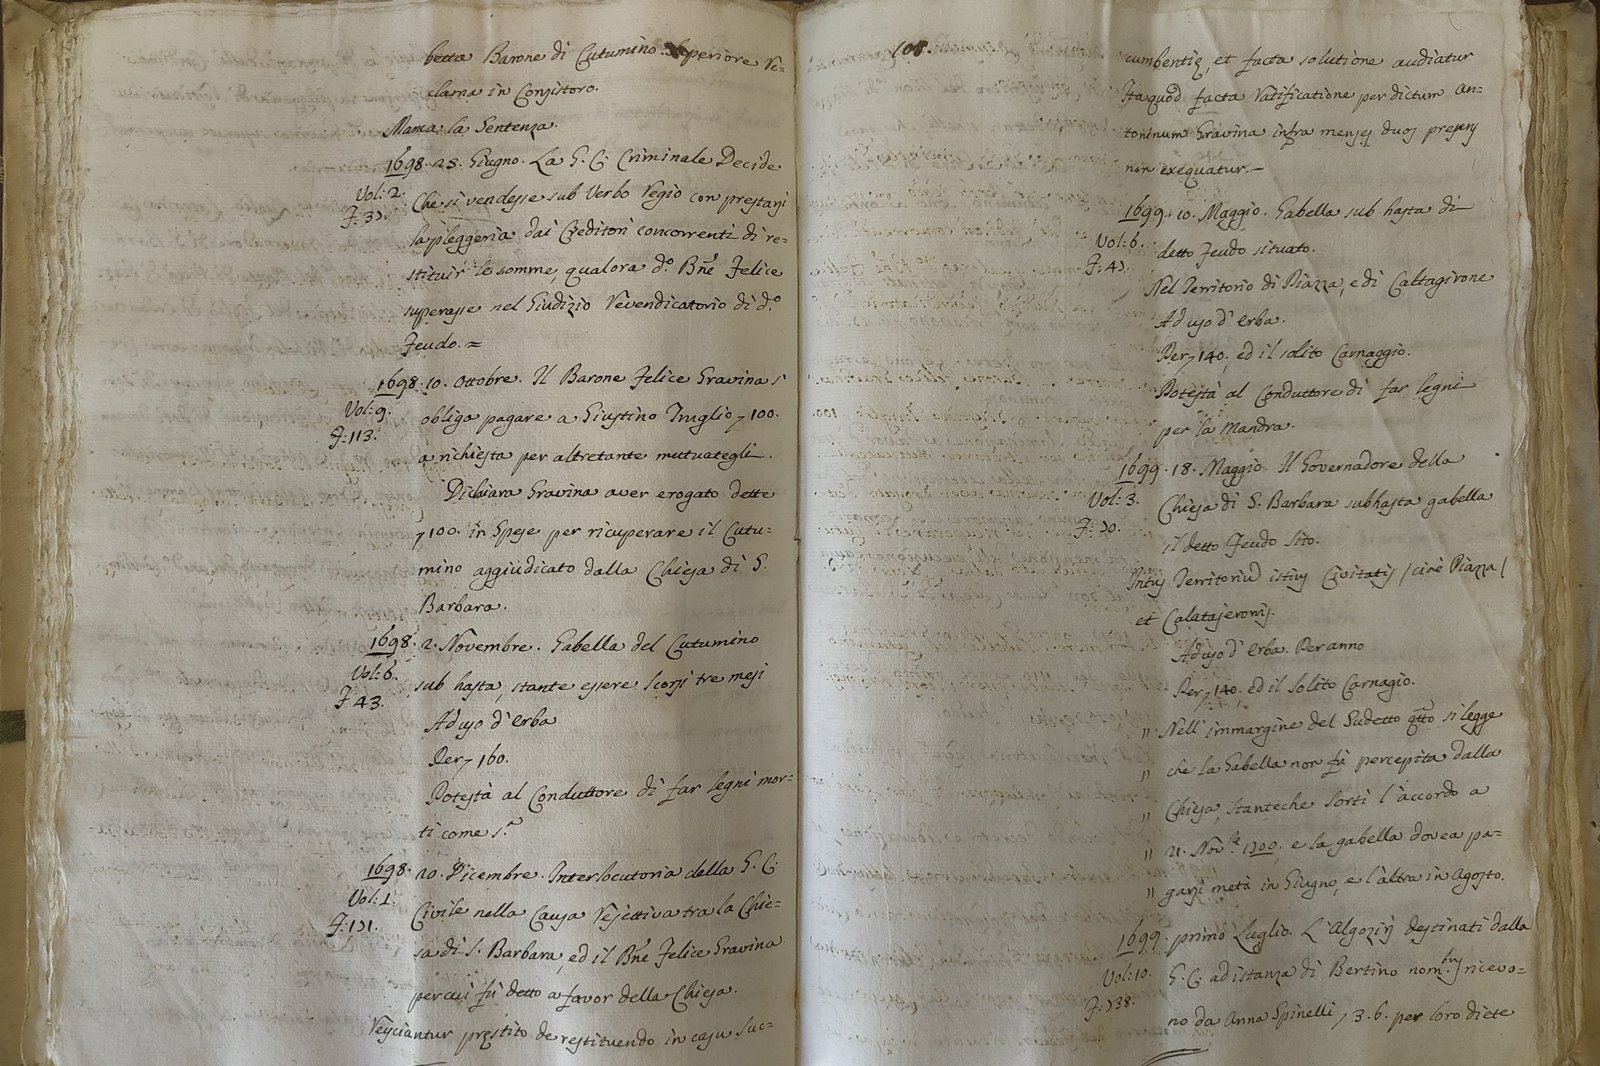 betta Barone di Cutumino Superiore re=
clama in Consistoro.
Manca la Sentenza.
1698. 28. Giugno. La G. C. Criminale Decide
Vol: 2.
Che si vendesse sub Verbo regio con prestarsi
la pleggeria dai Creditori concorrenti di re=
stituir le somme, qualora d.º Bñe Felice
superasse nel Giudizio revendicatorio di d.º
Feudo. =
1698. 10. Ottobre. Il Barone Felice Gravina s'
Vol: 9.
F: 113.
obliga pagare a Giustino 100.
a richiesta per altretante mutuategli.
Dichiara Gravina aver erogato dette
100. in Spese per ricuperare il Cutu=
mino aggiudicato dalla Chiesa di S.
Barbara.
1698. 2. Novembre. Gabella del Cutumino
Vol: 6.
F. 43.
sub hasta, stante essere scorsi tre mesi
Ad uso d'erba
Per 160.
Potestà al Conduttore di far legni mor=
ti come s.ª
1698. 20. Dicembre. Interlocutoria della G. C.
Vol: 1.
Civile nella Causa rejettiva tra la Chie=
sa di S. Barbara, ed il Bñe Felice Gravina
per cui fù detto a favor della Chiesa.
Reyciantur prestito de restituendo in casu suc=
108.
cumbentię, et facta solutione audiatur
Ita quod facta ratificatione per dictum An=
toninum Gravina infra menses duos presens
non exequatur.
1699. 10. Maggio. Gabella sub hasta di
Vol: 6.
detto Feudo situato.
Nel Territorio di Piazza, e di Caltagirone
Ad uso d'erba.
Per 140. ed il solito Carnaggio.
Potestà al Conduttore di far legni
per la mandra.
1699. 18. Maggio. Il Governadore della
Vol: 3.
Chiesa di S. Barbara subhasta gabella
il detto Feudo Sito.
Intus Territoriu istius Civitatis /cioè Piazza/
et Calatajeronis.
Ad uso d'erba. Per anno
Per 140. ed il solito Carnagio.
" Nell' immargine del Sudetto si legge
" che la Gabella non fù percepita dalla
" Chiesa, stanteche sortì l'accordo a
" 21. Nov.re 1700. e la gabella dovea pa=
" garsi metà in Giugno, e l'altra in Agosto.
1699. primo Luglio. L'Algozirj destinati dalla
Vol: 10.
G. C. ad istanza di Bertino ricevo=
no da Anna Spinelli 3. 6. per loro diete